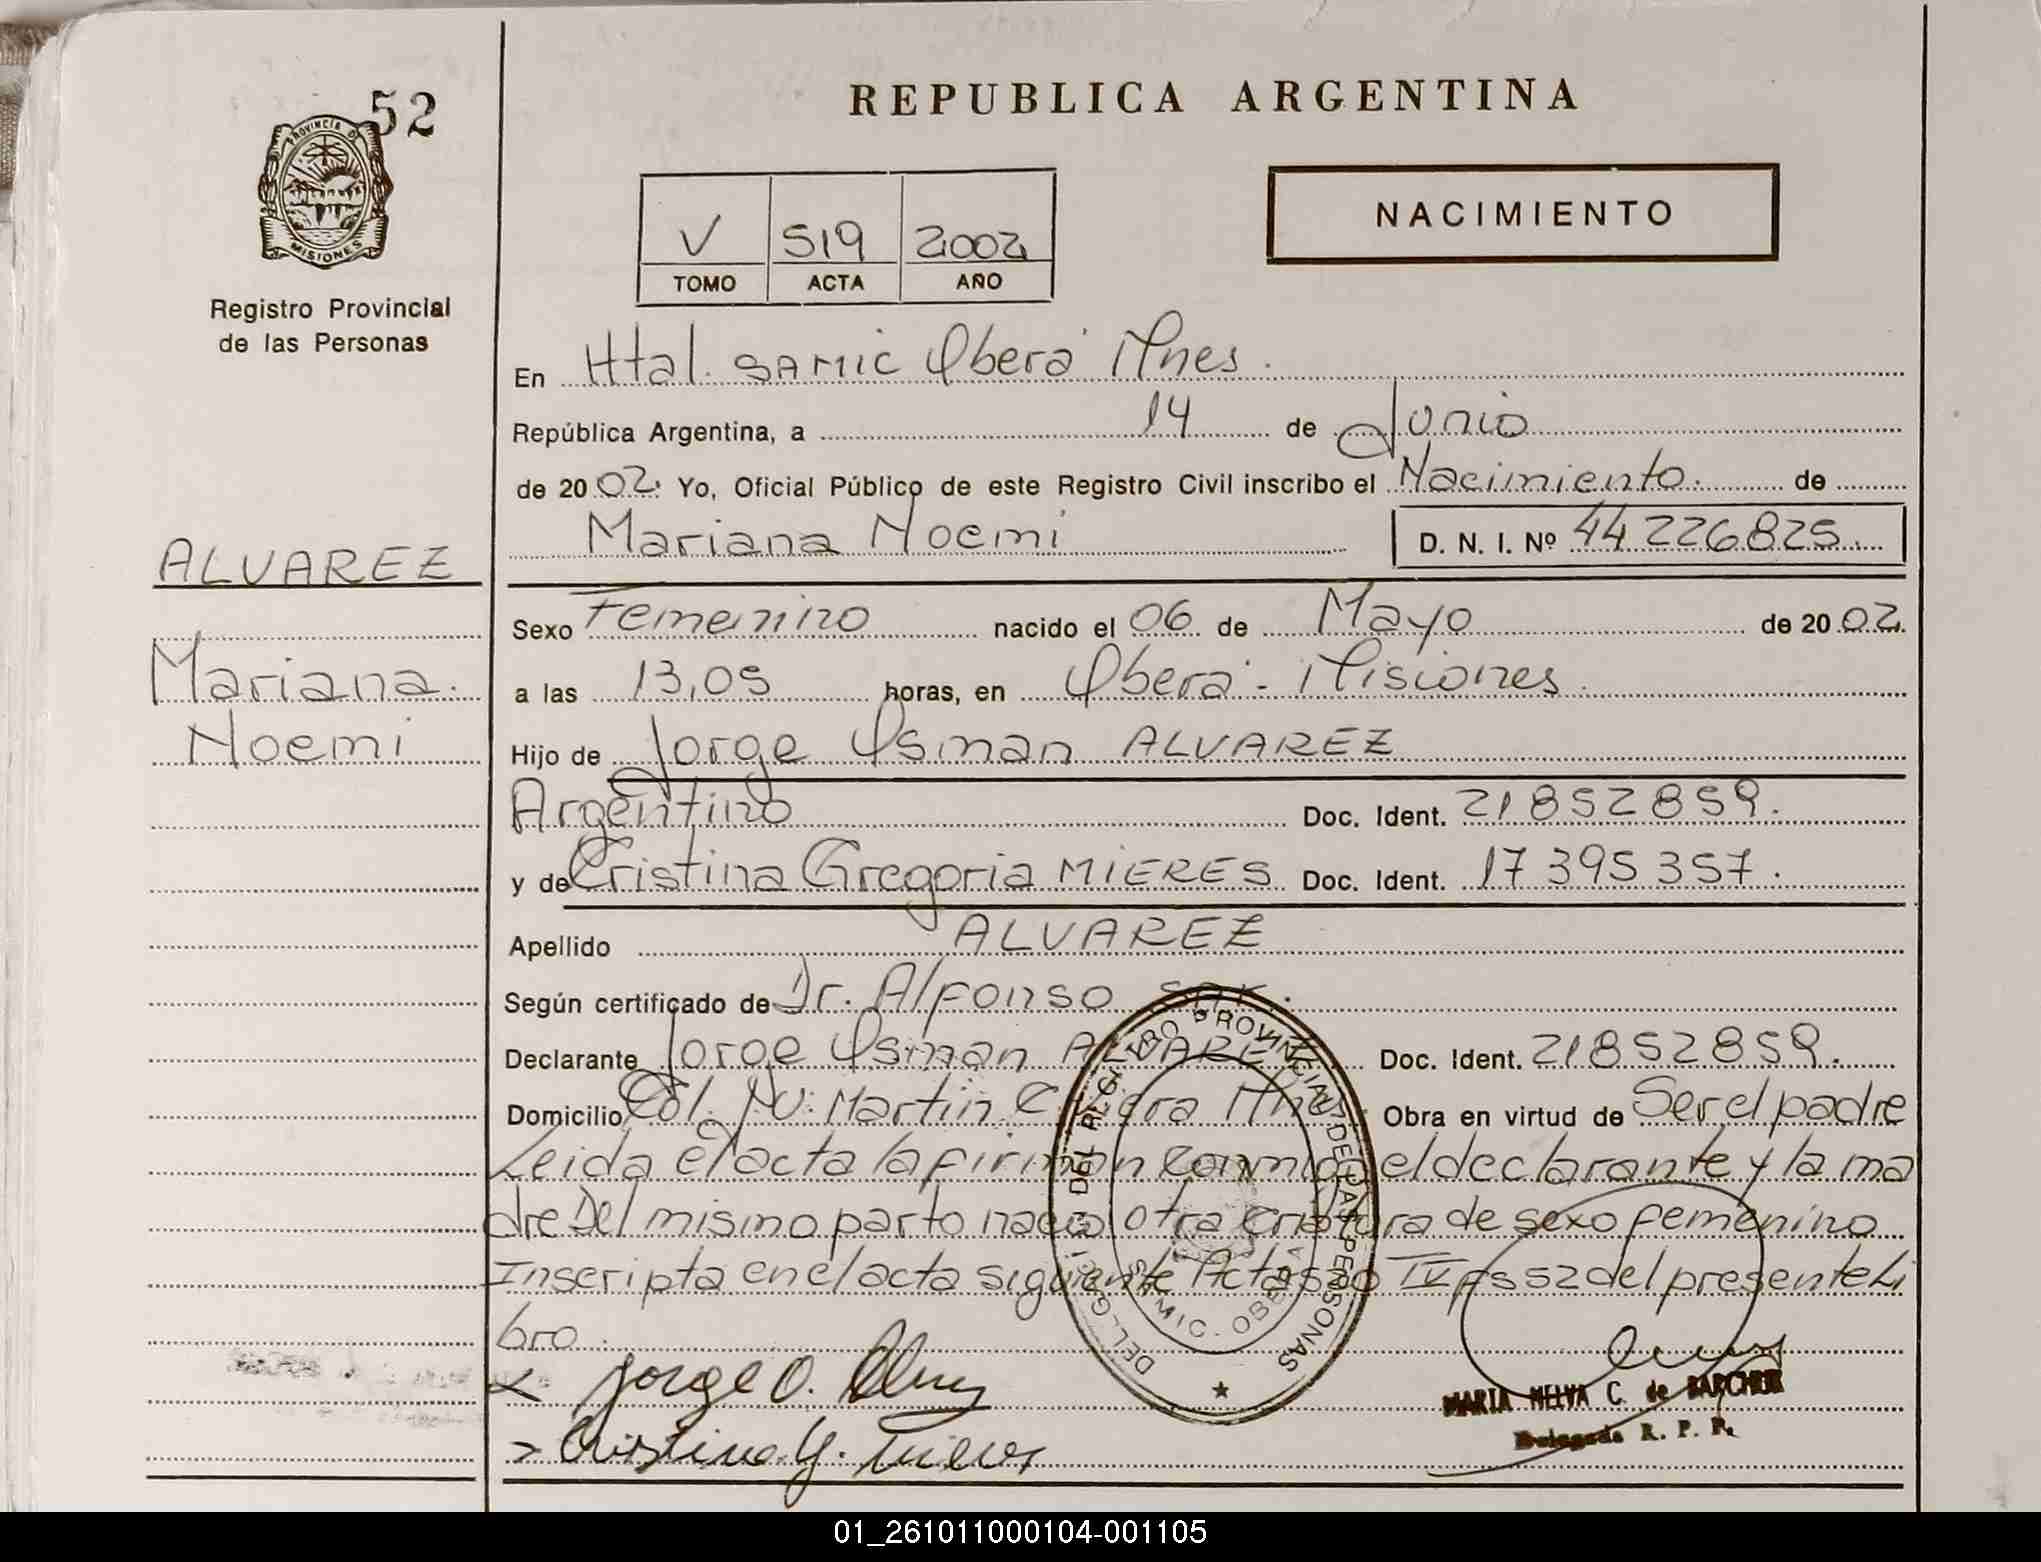 52
PROVINCIA DE
MISIONES
Registro Provincial
de las Personas
REPUBLICA ARGENTINA
V 519 2002
TOMO ACTA AÑO
NACIMIENTO
En Htal. SAMIC Oberá Mnes.
República Argentina, a 14 de Junio
de 2002. Yo, Oficial Público de este Registro Civil inscribo el Nacimiento. de
Mariana Noemi D. N. I. Nº 44 226825.
ALVAREZ
Mariana
Noemi
Sexo Femenino nacido el 06 de Mayo de 2002.
a las 13,05 horas, en Oberá - Misiones.
Hijo de Jorge Osman ALVAREZ
Argentino Doc. Ident. 21852859.
y de Cristina Gregoria MIERES Doc. Ident. 17395357.
Apellido ALVAREZ
Según certificado de Dr. Alfonso
Declarante Jorge Osman ALVAREZ Doc. Ident. 21852859.
Domicilio Col. Martin Obra en virtud de Ser el padre
Leida el acta la firman conmigo el declarante y la ma
dre Del mismo parto nacio otra criatura de sexo femenino
Inscripta en el acta siguiente Acta 520 TV fs 52 del presente Li
bro.
DEL REGISTRO PROVINCIAL DE LAS PERSONAS
SAMIC - OBERA
Jorge O.
Cristina G.
MARIA MELVA C. de
Delegada R. P. P.
01_261011000104-001105